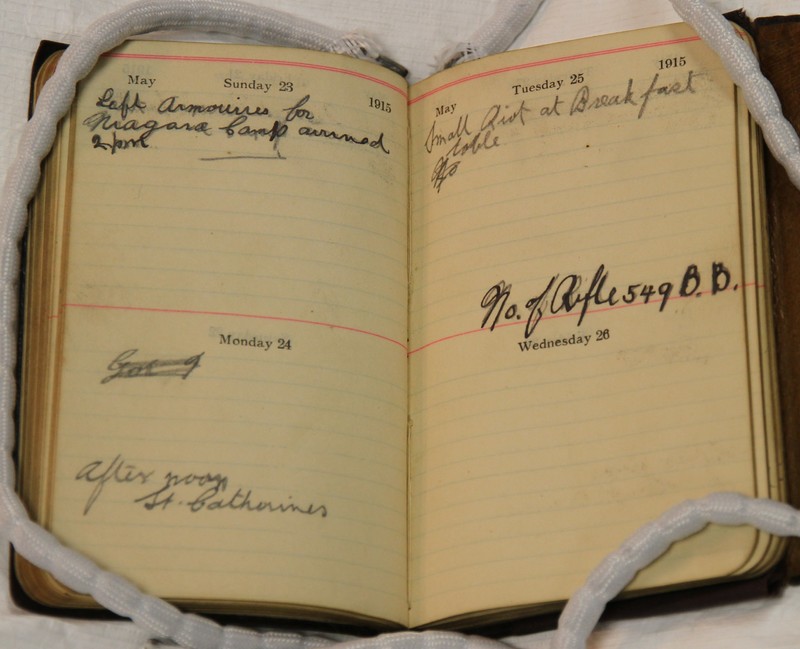 May Sunday 23 1915
Left Armouires for
Niagara Camp arrived
2 pm
Monday 24
After noon
St. Catharines
May Tuesday 25 1915
Small Riot at Breakfast
table
No
No. of Rifle 549 B.B.
Wednesday 26